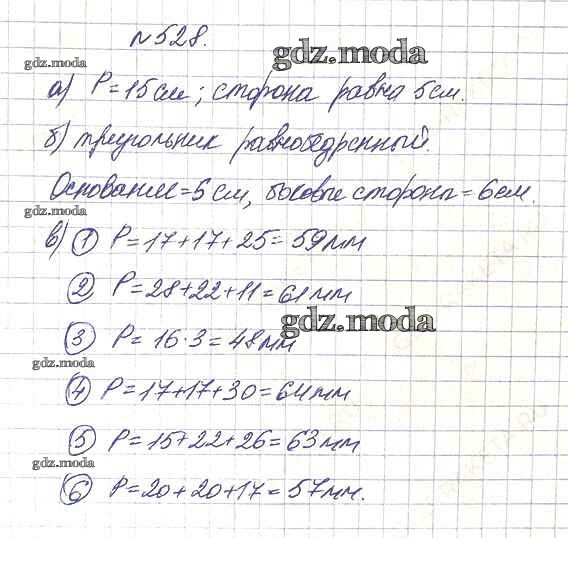 №528.
gdz.moda
gdz.moda
а) P=15см; сторона равна 5см.
б) треугольник равнобедренный.
Основание=5см, боковые стороны=6см.
gdz.moda
в) 1 P=17+17+25=59мм
2 P=28+22+11=61мм
gdz.moda
3 P=16·3=48мм
gdz.moda
4 P=17+17+30=64мм
5 P=15+22+26=63мм
gdz.moda
6 P=20+20+17=57мм.